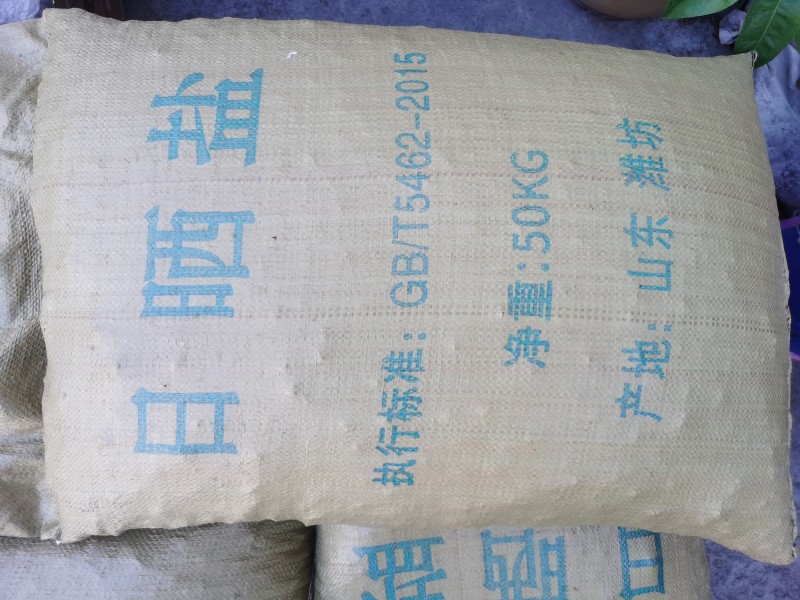 日晒盐
执行标准：GB/T5462-2015
净重：50KG
产地：山东 潍坊